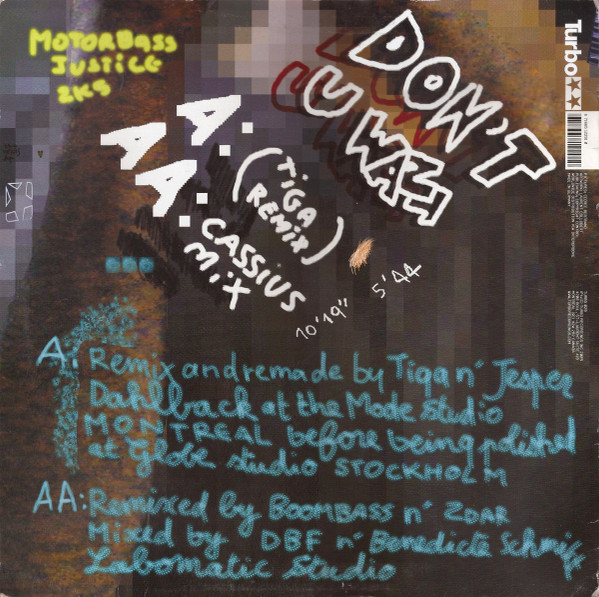 MOTORBASS
JUSTICE
2K9
DON'T
U WAH
Turbo
A.
(TIGA
REMIX)
AA.
CASSIUS
MIX
10'19" 5'44
A: Remix and remade by Tiga n' Jesper
Dahlback at the Mode Studio
MONTREAL before being polished
at Globe studio STOCKHOLM
AA: Remixed by BOOMBASS n' ZDAR
Mixed by DBF n' Benedicte Schmitt
Labomatic Studio